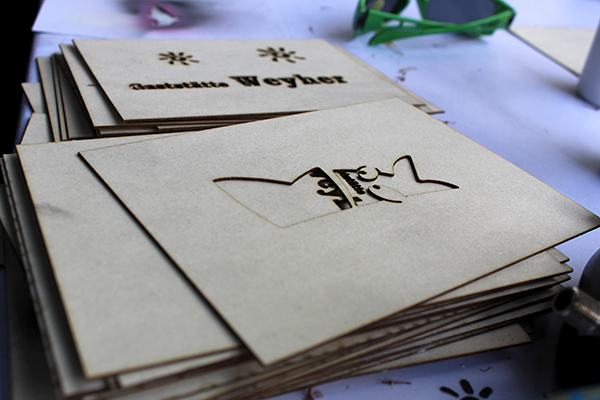 Gaststätte Weyher